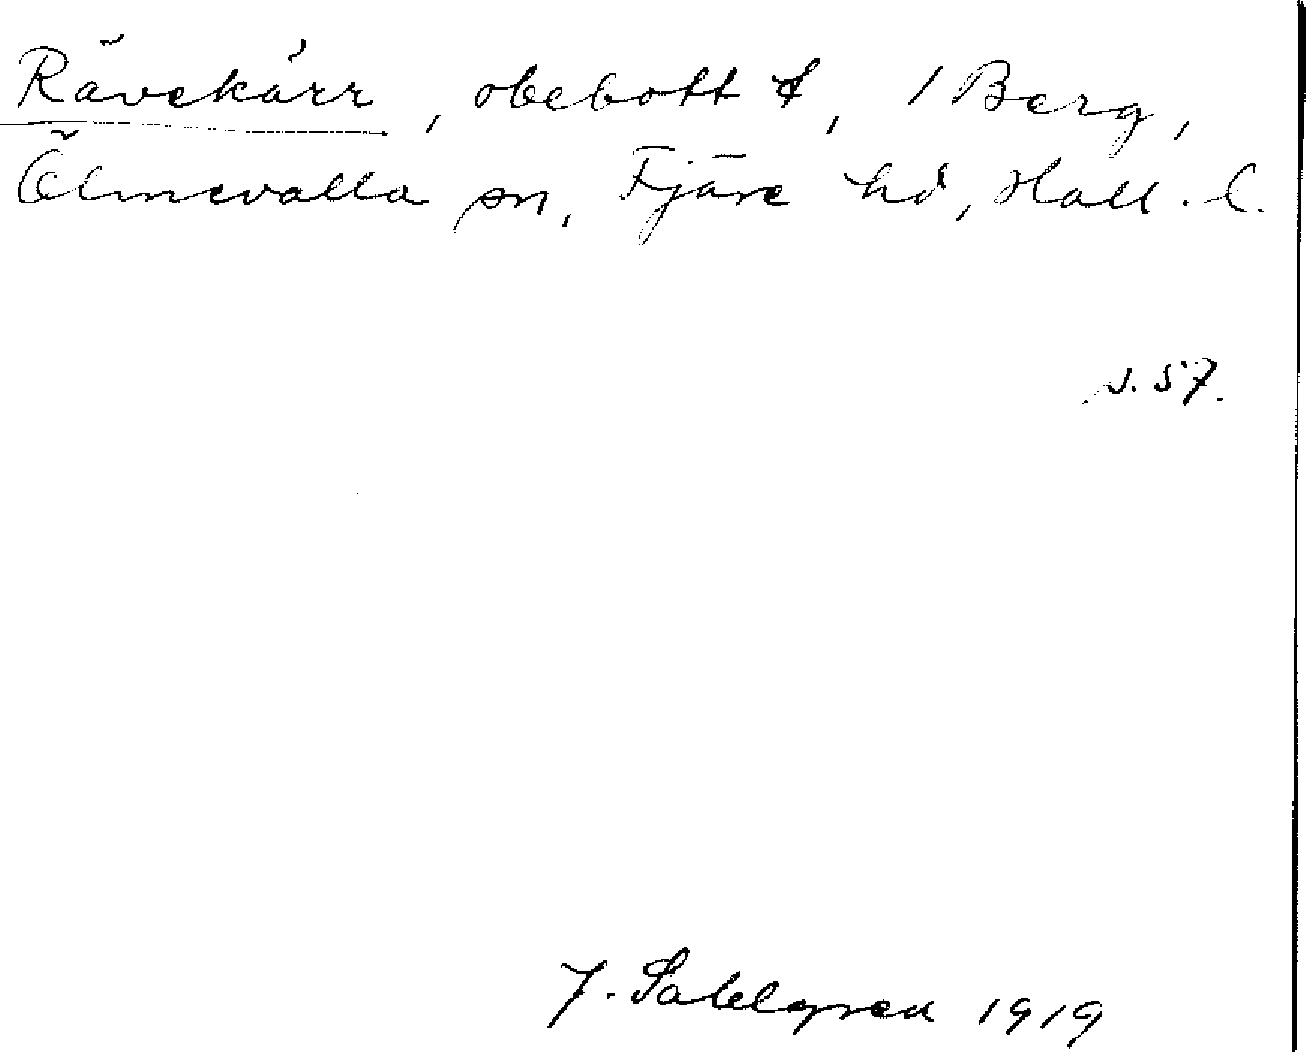 Rävekärr, obebott f, 1 Berg,
Ölmevalla sn, Fjäre hd, Hall. l.
s. 57.
J. Sahlgren 1919